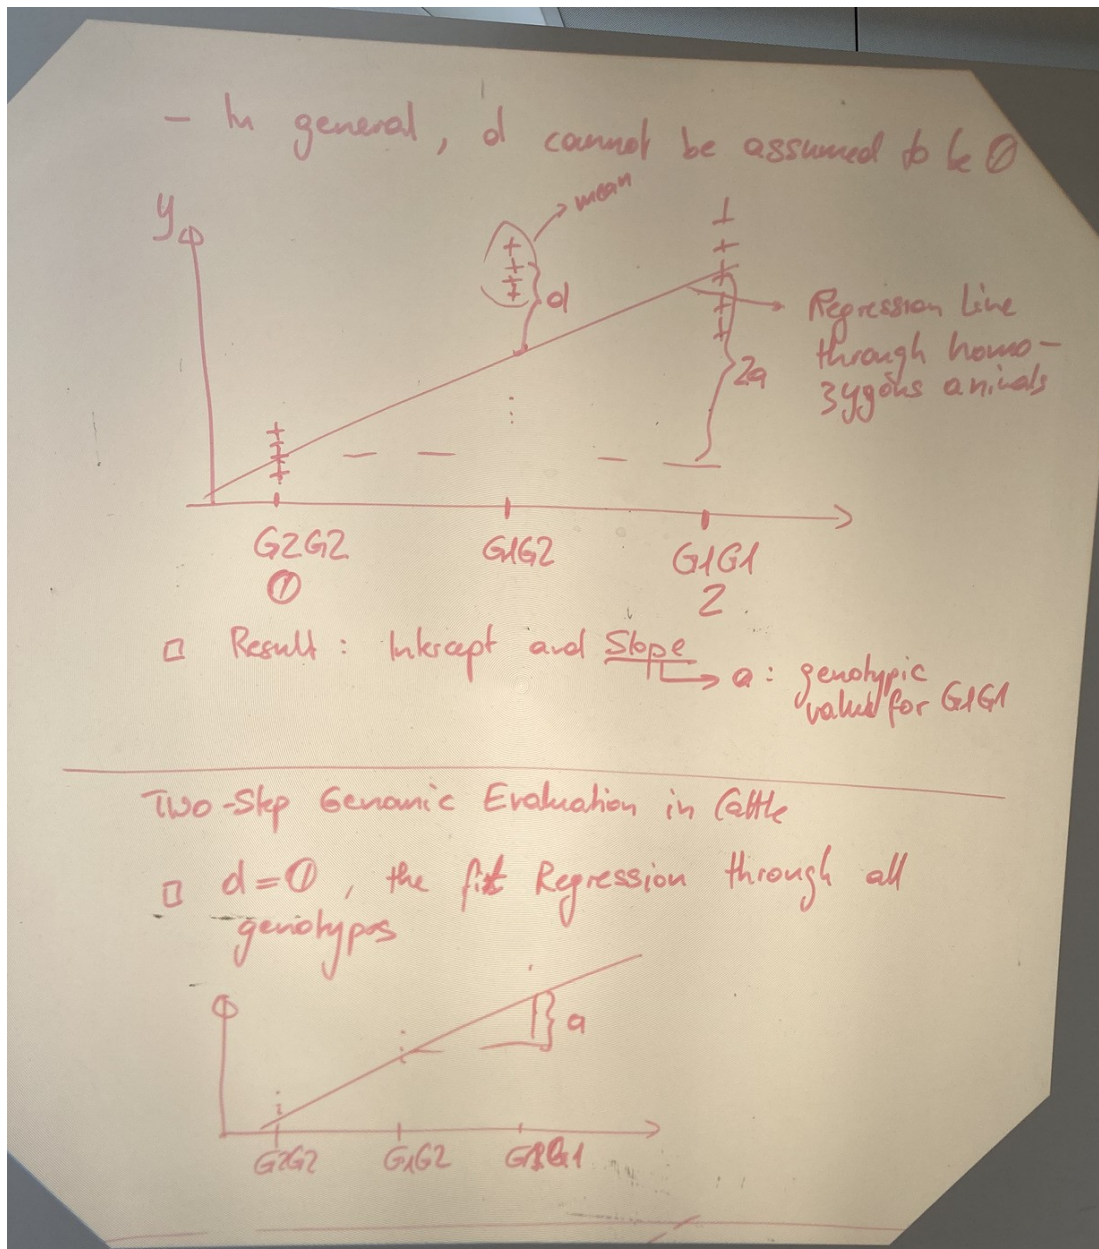 - In general, d cannot be assumed to be 0
mean
y
d
Regression Line
through homo-
zygous animals
2a
G2G2
G1G2
G1G1
0
2
□ Result: Intercept and Slope
a: genotypic
value for G1G1
Two-Step Genomic Evaluation in Cattle
□ d=0, the fit Regression through all
genotypes
a
G2G2
G1G2
G1G1